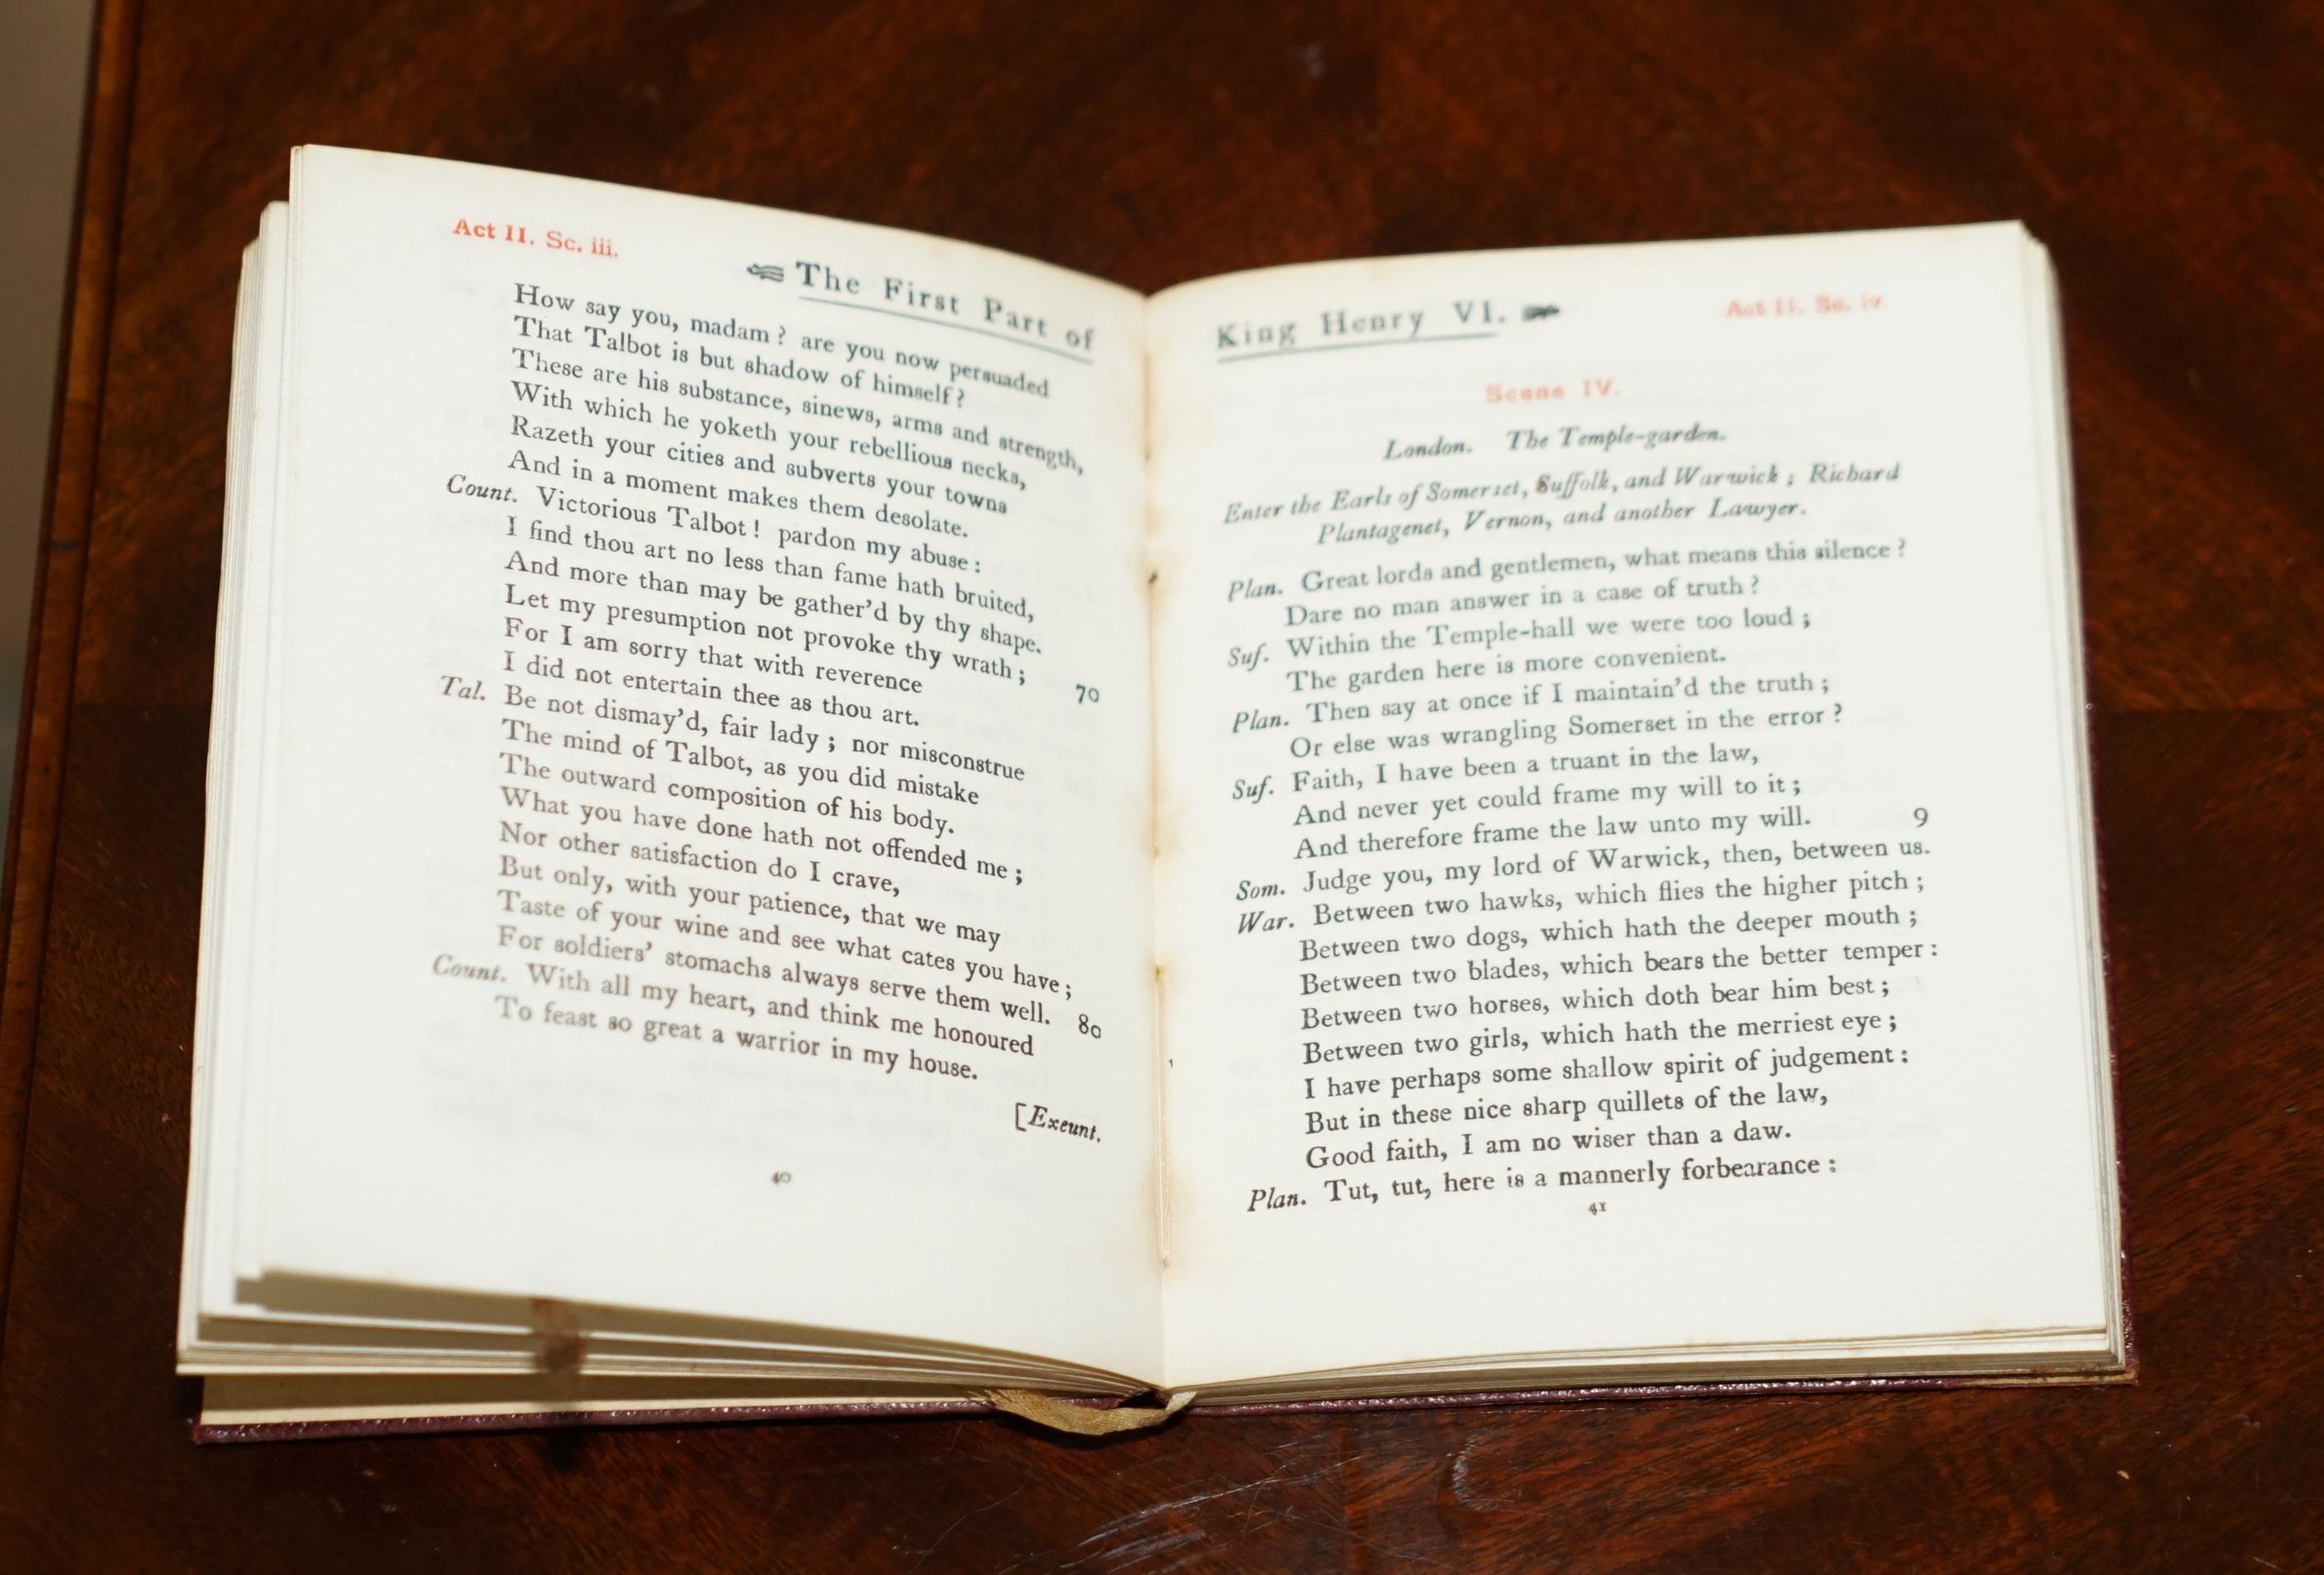 Act II. Sc. iii.
The First Part of
How say you, madam? are you now persuaded
That Talbot is but shadow of himself?
These are his substance, sinews, arms and strength,
With which he yoketh your rebellious necks,
Razeth your cities and subverts your towns
And in a moment makes them desolate.
Count. Victorious Talbot! pardon my abuse:
I find thou art no less than fame hath bruited,
And more than may be gather'd by thy shape.
Let my presumption not provoke thy wrath;
For I am sorry that with reverence 70
I did not entertain thee as thou art.
Tal. Be not dismay'd, fair lady; nor misconstrue
The mind of Talbot, as you did mistake
The outward composition of his body.
What you have done hath not offended me;
Nor other satisfaction do I crave,
But only, with your patience, that we may
Taste of your wine and see what cates you have;
For soldiers' stomachs always serve them well. 80
Count. With all my heart, and think me honoured
To feast so great a warrior in my house.
[Exeunt.
40
King Henry VI.
Act II. Sc. iv.
Scene IV.
London. The Temple-garden.
Enter the Earls of Somerset, Suffolk, and Warwick; Richard
Plantagenet, Vernon, and another Lawyer.
Plan. Great lords and gentlemen, what means this silence?
Dare no man answer in a case of truth?
Suf. Within the Temple-hall we were too loud;
The garden here is more convenient.
Plan. Then say at once if I maintain'd the truth;
Or else was wrangling Somerset in the error?
Suf. Faith, I have been a truant in the law,
And never yet could frame my will to it;
And therefore frame the law unto my will. 9
Som. Judge you, my lord of Warwick, then, between us.
War. Between two hawks, which flies the higher pitch;
Between two dogs, which hath the deeper mouth;
Between two blades, which bears the better temper:
Between two horses, which doth bear him best;
Between two girls, which hath the merriest eye;
I have perhaps some shallow spirit of judgement:
But in these nice sharp quillets of the law,
Good faith, I am no wiser than a daw.
Plan. Tut, tut, here is a mannerly forbearance:
41